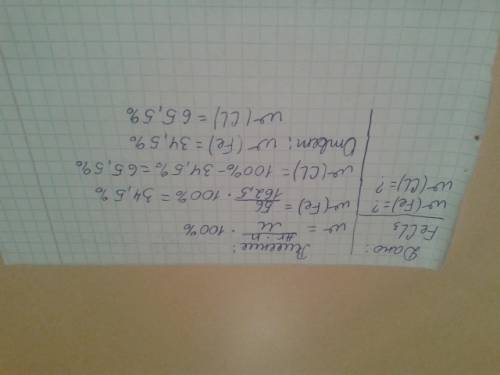 Дано:
FeCl₃
w(Fe)=?
w(Cl)=?
Решение:
w = Ar·n/M · 100%
w(Fe) = 56/162,5 · 100% = 34,5%
w(Cl) = 100% - 34,5% = 65,5%
Ответ: w(Fe) = 34,5%
w(Cl) = 65,5%